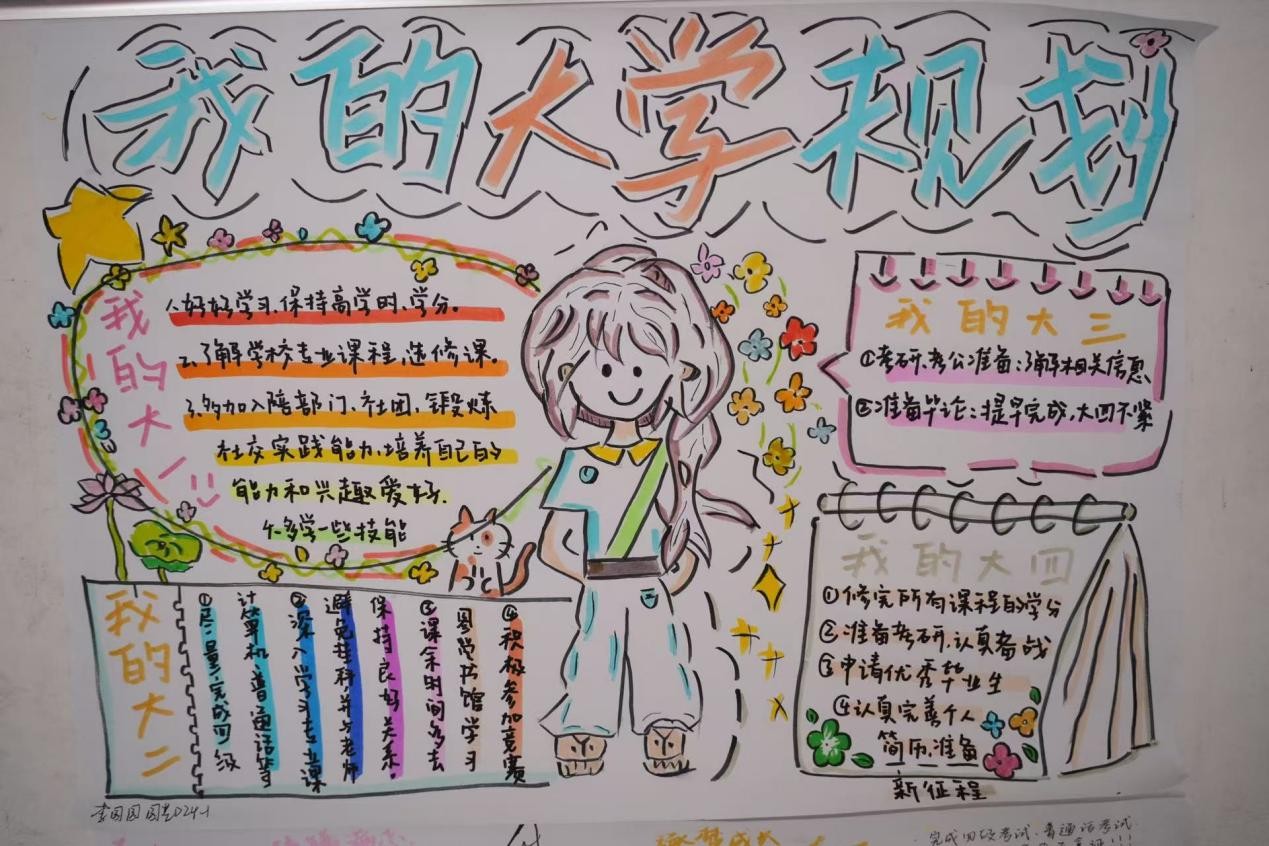 我的大学规划
我的大一
1.好好学习、保持高学时、学分。
2.了解学校专业课程,选修课。
3.多加入陪部门、社团、锻炼
社交实践能力、培养自己的
能力和兴趣爱好.
4.多学一些技能
我的大二
①尽量完成四级
计算机、普通话等
②深入学习专业课
避免挂科,并与老师
保持良好关系。
③课余时间多去
图书馆学习
④积极参加竞赛
我的大三
①考研、考公准备:了解相关信息
②准备毕论:提早完成,大四不紧
我的大四
①修完所有课程的学分
②准备考研,认真备战
③申请优秀毕业生
④认真完善个人
简历、准备
新征程
完成四级考试、普通话考试